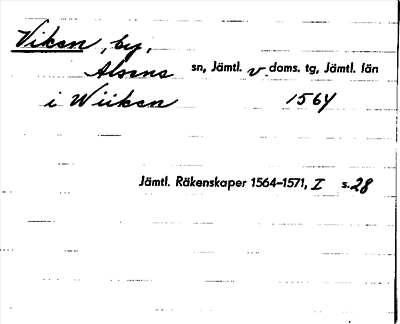 Viken, by,
Alsens sn, Jämtl. v. doms. tg, Jämtl. län
i Wiiken 1564
Jämtl. Räkenskaper 1564–1571, I s. 28